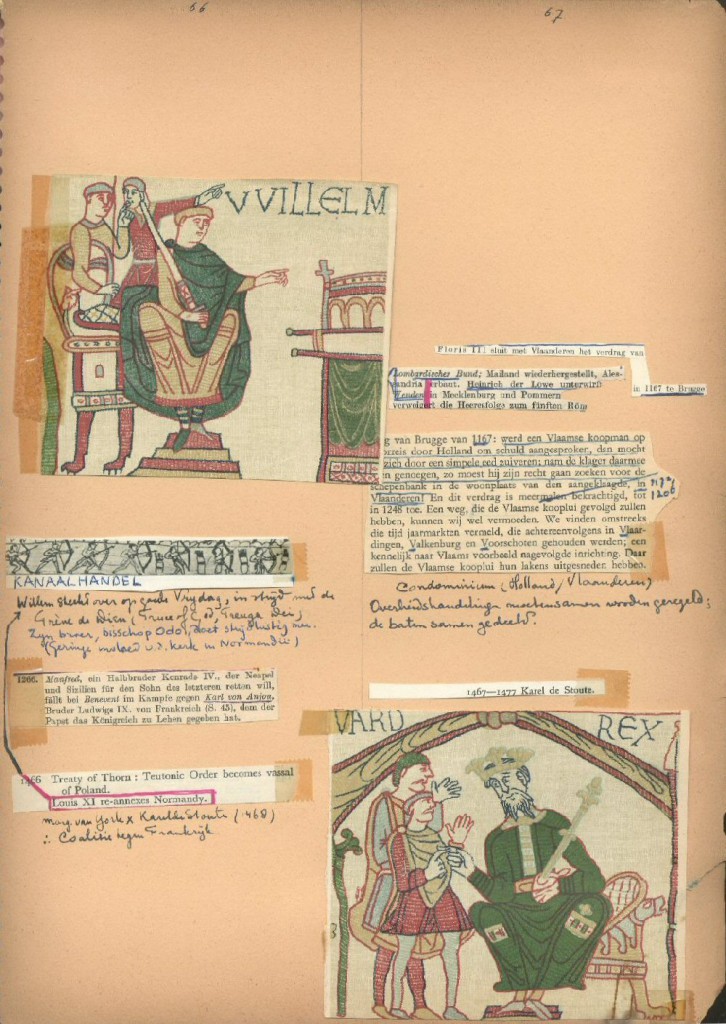 66
67
VVILLELM
Floris III sluit met Vlaanderen het verdrag van
in 1167 te Brugge
Lombardisches Bund; Mailand wiederhergestellt, Ales-
sandria erbaut. Heinrich der Löwe unterwirft
Wenden in Mecklenburg und Pommern
verweigert die Heeresfolge zum fünften Röm
g van Brugge van 1167: werd een Vlaamse koopman op
orzeis door Holland om schuld aangesproken, den mocht
zich door een simpele eed zuiveren; nam de klager daarmee
en genoegen, zo moest hij zijn recht gaan zoeken voor de
schepenbank in de woonplaats van den aangeklaagde, in
Vlaanderen! En dit verdrag is meermalen bekrachtigd, tot
in 1248 toe. Een weg, die de Vlaamse kooplui gevolgd zullen
hebben, kunnen wij wel vermoeden. We vinden omstreeks
die tijd jaarmarkten vermeld, die achtereenvolgens in Vlaar-
dingen, Valkenburg en Voorschoten gehouden werden; een
kennelijk naar Vlaams voorbeeld nagevolgde inrichting. Daar
zullen de Vlaamse kooplui hun lakens uitgesneden hebben.
1206
Condominium (Holland/Vlaanderen)
Overheidshandelingen moesten samen worden geregeld;
de baten samen gedeeld.
KANAALHANDEL
Willem steekt over op goede Vrijdag, in strijd met de
Trève de Dieu (Truce of God, Treuga Dei),
Zijn broer, bisschop Odo, doet strijdlustig mee.
(Geringe invloed v.d. kerk in Normandië)
1266. Manfred, ein Halbbruder Konrads IV., der Neapel
und Sizilien für den Sohn des letzteren retten will,
fällt bei Benevent im Kampfe gegen Karl von Anjou,
Bruder Ludwigs IX. von Frankreich (S. 45), dem der
Papst das Königreich zu Lehen gegeben hat.
1467—1477 Karel de Stoute.
1466 Treaty of Thorn: Teutonic Order becomes vassal
of Poland.
Louis XI re-annexes Normandy.
Marg. van York x Karel de Stoute (1468)
∴ Coalitie tegen Frankrijk
VARD REX